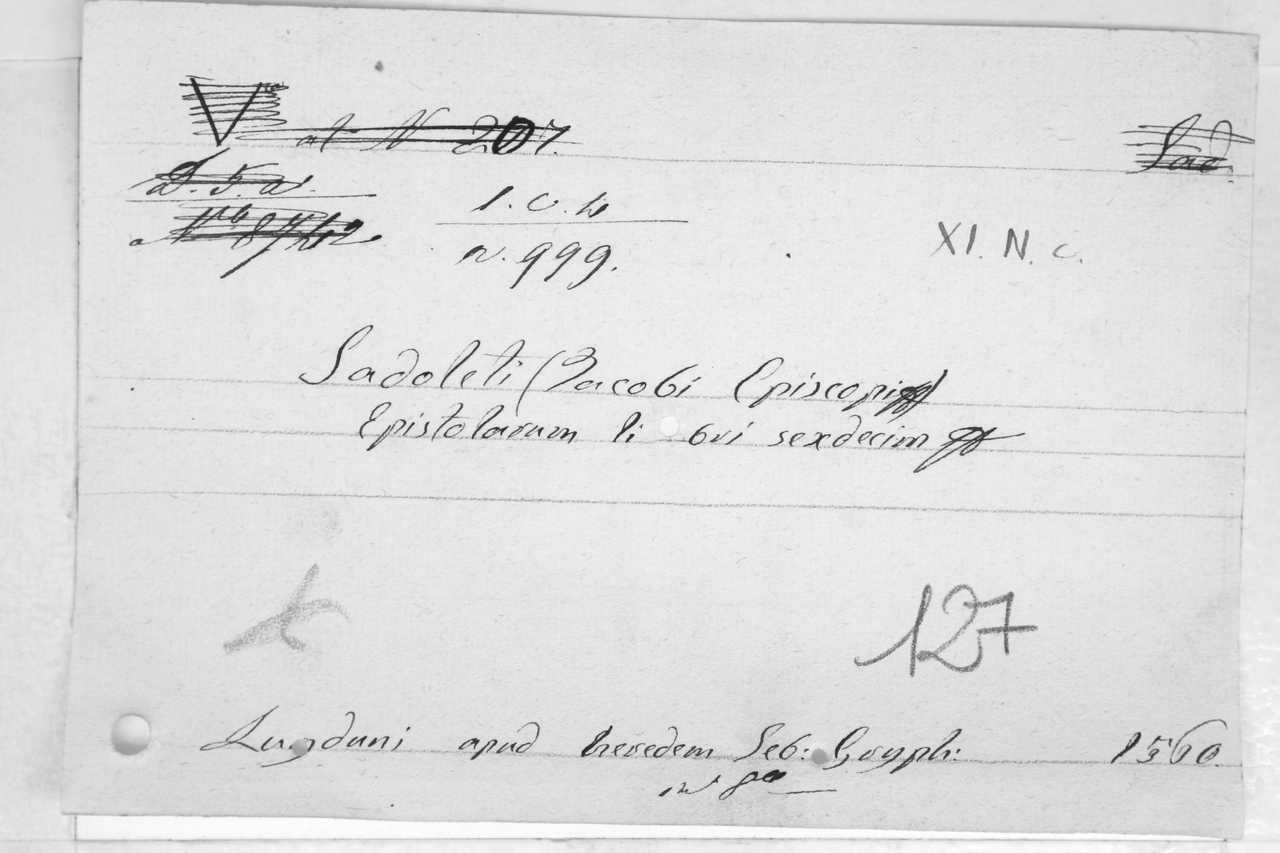 V at N 207.
Sad.
D. 5. a.
No 8742
1. c. h
n. 999.
XI. N. c.
Sadoleti (Jacobi Episcopi)
Epistolarum li bri sexdecim
127
Lugduni apud heredem Seb: Gryph: 1560.
in 8o